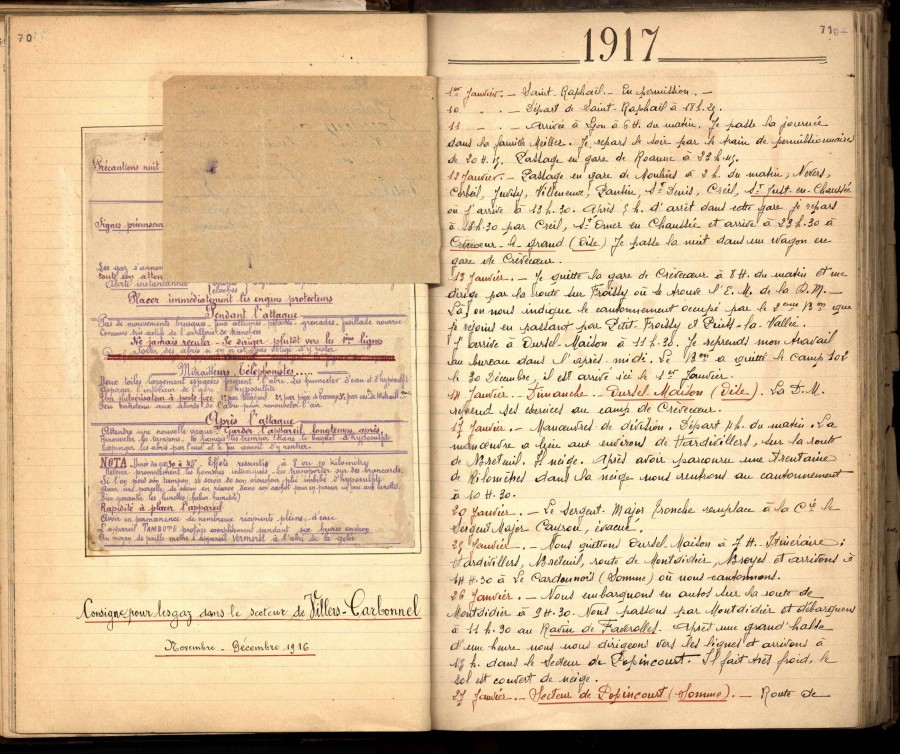 70
Précautions nuit
Signes prémon
Les gaz s'annon
toute son atten
Alerte instantanée
Placer immédiatement les engins protecteurs
Pendant l'attaque
Pas de mouvements brusques, feux allumés, pétards, grenades, fusillade nourrie
Concours très actif de l'artillerie de tranchées
Ne jamais reculer - Se diriger plutôt vers les 1ères lignes
Sortir des abris si on n'est pas obligé d'y rester
Mitrailleurs, Téléphonistes....
Deux toiles largement espacées l'abri. Les humecter d'eau et d'hyposulfite
Asperger l'intérieur de l'abri
Un pulvérisateur à poste fixe 1° par téléphone 2° par pièce de barrage 3° par
Après l'attaque
Attendre une nouvelle vague. Garder l'appareil longtemps après.
Renouveler les tampons.
NOTA - Durée du gaz 30 à 45' Effets ressentis à 8 ou 10 kilomètres
Rapidité à placer l'appareil
Avoir en permanence de nombreux récipients pleins d'eau
L'appareil TAMBUTÉ protège complètement pendant six heures environ
Consigne pour les gaz dans le secteur de Villers-Carbonnel
Novembre - Décembre 1916
71
1917
1er Janvier. - Saint-Raphaël. - En permission. -
10 . . - Départ de Saint-Raphaël à
11 - . - Arrivée à Lyon à 6 H. du matin. Je passe la journée
dans la famille Meiller. Je repars le soir par le train de permissionnaires
de 20 H. 15. Passage en gare de Roanne à 22 h. 45.
12 Janvier. - Passage en gare de Moulins à 2 h. du matin, Nevers,
Corbeil, Juvisy, Villeneuve, Pantin, St Denis, Creil, St Just-en-Chaussée
où j'arrive à 13 h. 30. Après 5 h. d'arrêt dans cette gare je repars
à 18 h. 30 par Creil, St Omer en Chaussée et arrive à 23 h. 30 à
Crèvecœur-le-grand (Oise) Je passe la nuit dans un wagon en
gare de Crèvecœur.
13 Janvier. - Je quitte la gare de Crèvecœur à 8 H. du matin et me
dirige par la route sur Froissy où se trouve l'E. M. de la D. M. -
Là, on nous indique le cantonnement occupé par le 2ème Bon que
je rejoins en passant par Petit-Froissy et Puits-la-Vallée.
J'arrive à Oursel-Maison à 11 h. 30. Je reprends mon travail
au bureau dans l'après midi. Le Bon a quitté le camp 102
le 30 Décembre, il est arrivé ici le 1er Janvier.
14 Janvier - Dimanche - Oursel Maison (Oise). La D. M.
reprend ses exercices au camp de Crèvecœur.
17 Janvier. - Manœuvres de division. Départ 4 h. du matin. La
manœuvre a lieu aux environs de Hardivillers, sur la route
de Breteuil. Il neige. Après avoir parcouru une trentaine
de kilomètres dans la neige nous rentrons au cantonnement
à 20 H. 30.
20 Janvier. - Le Sergent-Major Fronche remplace à la Cie le
Sergent Major Cayrou, évacué.
25 Janvier. - Nous quittons Oursel-Maison à 7 H. Itinéraire :
Hardivillers, Breteuil, route de Montdidier, Broyes et arrivons à
14 H. 30 à Le Cardonnois (Somme) où nous cantonnons.
26 Janvier. - Nous embarquons en autos sur la route de
Montdidier à 9 H. 30. Nous passons par Montdidier et débarquons
à 11 h. 30 au Ravin de Faverolles. Après une grand'halte
d'une heure nous nous dirigeons vers les lignes et arrivons à
17 h. dans le Secteur de Popincourt. Il fait très froid, le
sol est couvert de neige.
27 Janvier. - Secteur de Popincourt (Somme). - Route de